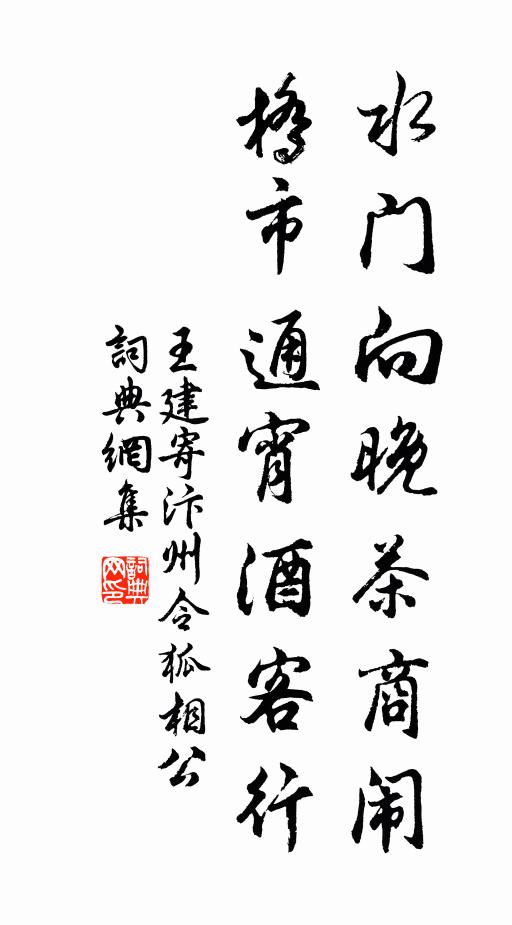 水门向晚茶商闹
橋市通宵酒客行
王建寄汴州令狐相公
詞典網集
詞典网印